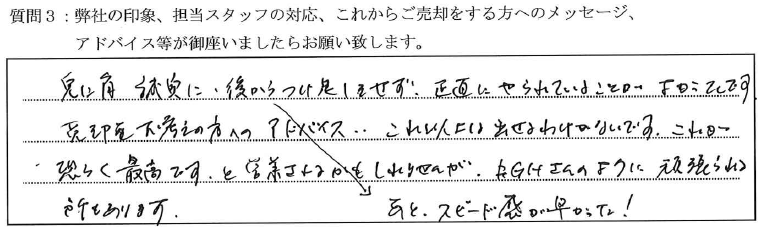 質問３：弊社の印象、担当スタッフの対応、これからご売却をする方へのメッセージ、
アドバイス等が御座いましたらお願い致します。
兎に角 誠実に、後からつけ足しもせず、正直にやられていることがよかったです
売却をお考えの方へのアドバイス‥ これ以上は出せるわけがないです。これが
恐らく最高です。と営業されるかもしれませんが、 さんのように頑張られる
所もあります。
あと、スピード感が早かった！